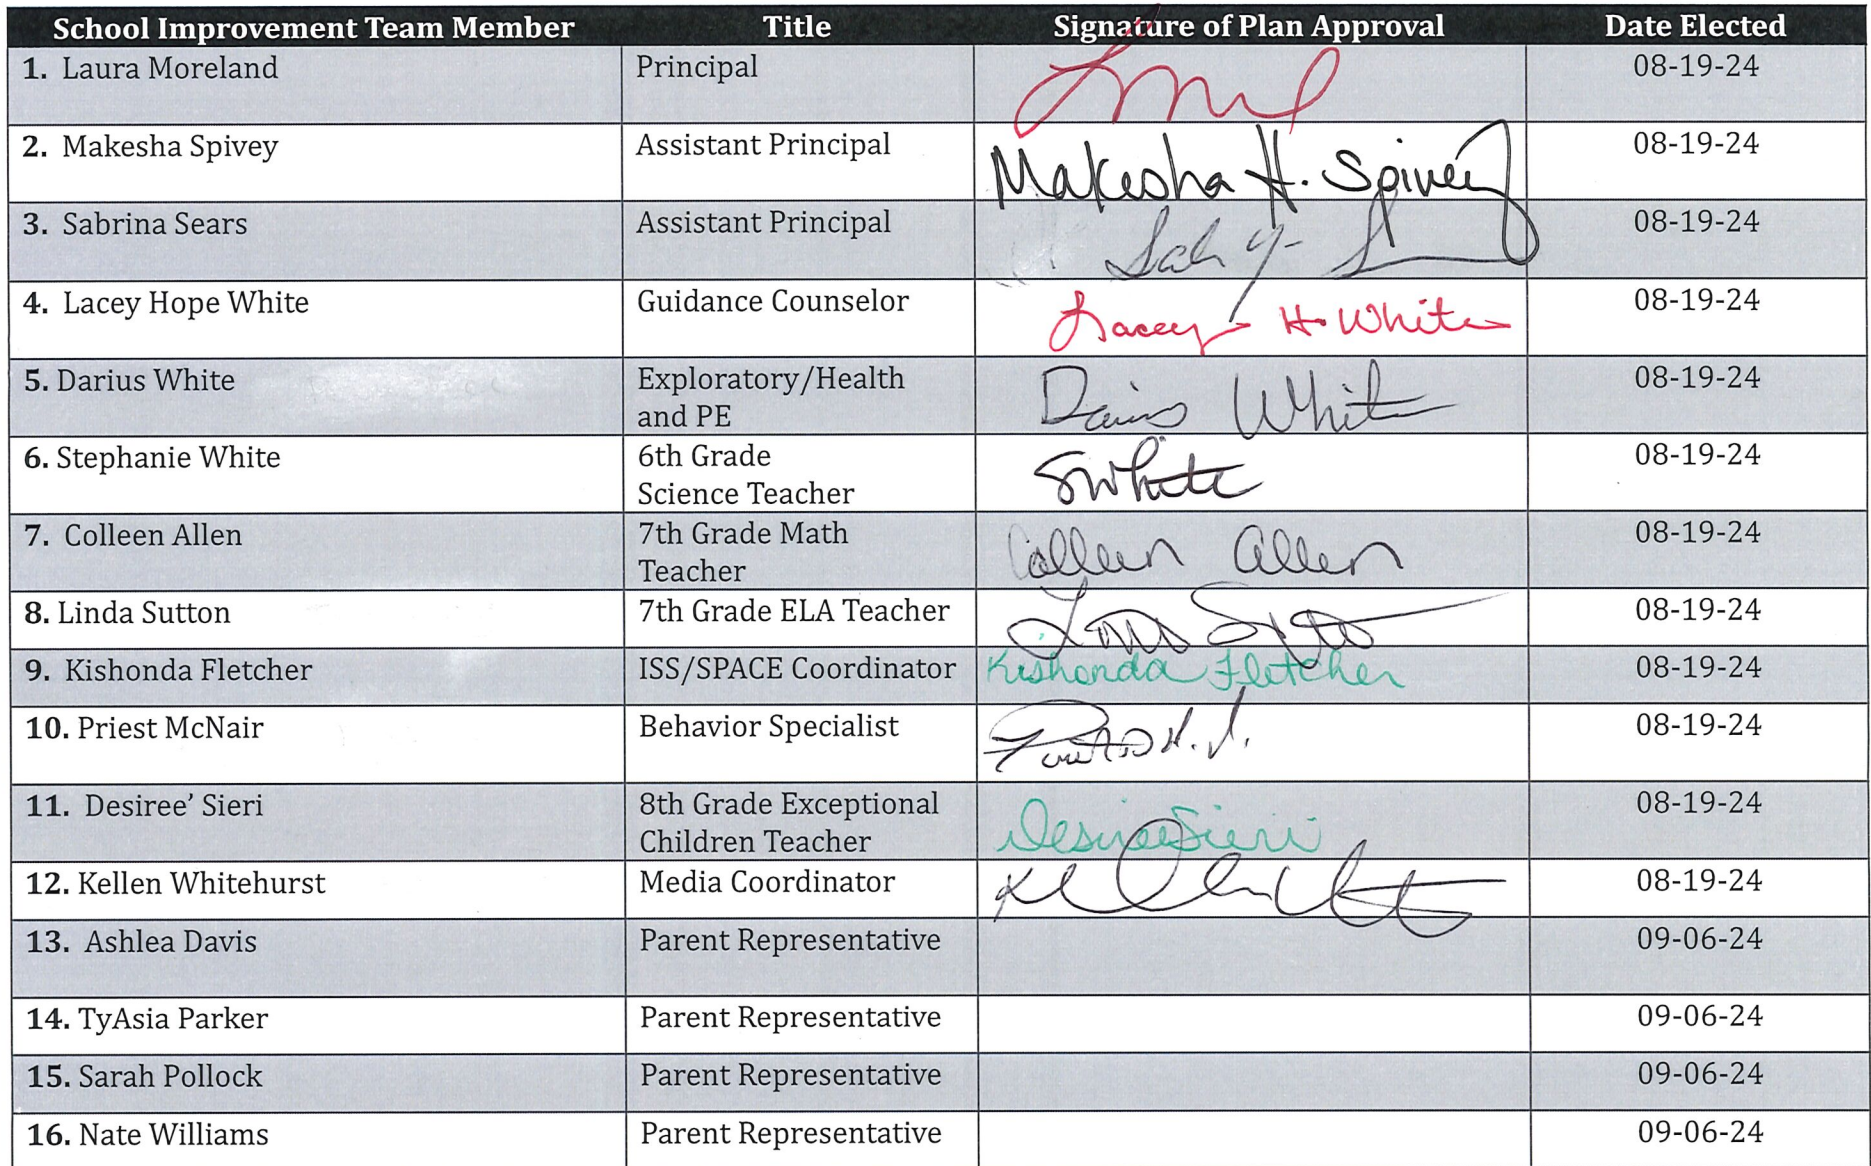 School Improvement Team Member Title Signature of Plan Approval Date Elected
1. Laura Moreland Principal 08-19-24
2. Makesha Spivey Assistant Principal Makesha H. Spivey 08-19-24
3. Sabrina Sears Assistant Principal 08-19-24
4. Lacey Hope White Guidance Counselor Lacey H. White 08-19-24
5. Darius White Exploratory/Health Darius White 08-19-24
and PE
6. Stephanie White 6th Grade SWhite 08-19-24
Science Teacher
7. Colleen Allen 7th Grade Math Colleen Allen 08-19-24
Teacher
8. Linda Sutton 7th Grade ELA Teacher 08-19-24
9. Kishonda Fletcher ISS/SPACE Coordinator Kishonda Fletcher 08-19-24
10. Priest McNair Behavior Specialist 08-19-24
11. Desiree’ Sieri 8th Grade Exceptional Desiree Sieri 08-19-24
Children Teacher
12. Kellen Whitehurst Media Coordinator 08-19-24
13. Ashlea Davis Parent Representative 09-06-24
14. TyAsia Parker Parent Representative 09-06-24
15. Sarah Pollock Parent Representative 09-06-24
16. Nate Williams Parent Representative 09-06-24